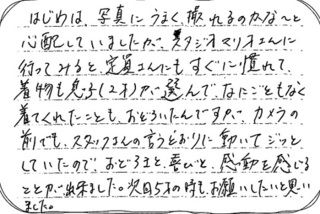 はじめは、写真にうまく撮れるのかな〜と
心配していましたが、スタジオマリオさんに
行ってみると、定員さんにもすぐに慣れて、
着物も息子(2才)が選んで、なにごともなく
着てくれたことも、おどろいたんですが、カメラの
前でも、スタッフさんの言うどおりに動いてジッと
していたので、おどろきと、喜びと、感動を感じる
ことが出来ました。次回5才の時もお願いしたいと思い
ました。